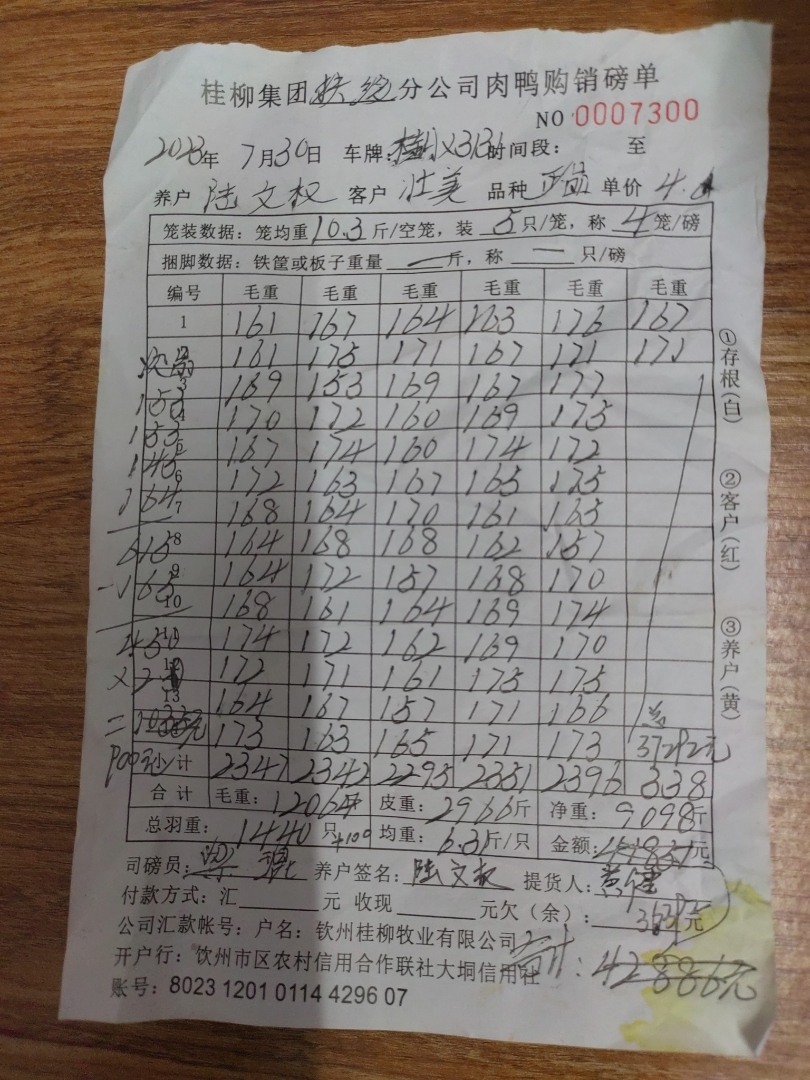 桂柳集团 分公司肉鸭购销磅单
NO 0007300
2023年 7月30日 车牌: 时间段: 至
养户 陆文权 客户 壮美 品种 单价 4.
笼装数据: 笼均重 10.3 斤/空笼, 装 5 只/笼, 称 4 笼/磅
捆脚数据: 铁筐或板子重量 — 斤, 称 — 只/磅
编号 毛重 毛重 毛重 毛重 毛重 毛重
1 161 167 164 163 176 167
161 175 171 167 171 171
3 169 153 169 167 177
153 170 172 160 169 175
153 5 167 174 160 174 172
145 6 172 163 167 165 175
164 7 168 164 170 161 165
615 8 164 168 168 162 157
-165 9 164 172 157 168 170
10 168 161 164 169 174
450 11 174 172 162 169 170
×2 12 172 171 161 175 175
= 13 164 167 157 171 166
173 163 165 171 173 37292元
900元 小计 2347 2342 2295 2351 2396 338
合计 毛重: 12064斤 皮重: 2966斤 净重: 9098斤
总羽重: 1440只 +100 均重: 6.31斤/只 金额: 元
司磅员: 养户签名: 陆文权 提货人: 黄健
付款方式: 汇 元 收现 元欠(余): 元
公司汇款帐号: 户名: 钦州桂柳牧业有限公司
开户行: 饮州市区农村信用合作联社大垌信用社 合计: 42886元
账号: 8023 1201 0114 4296 07
①存根(白)
②客户(红)
③养户(黄)